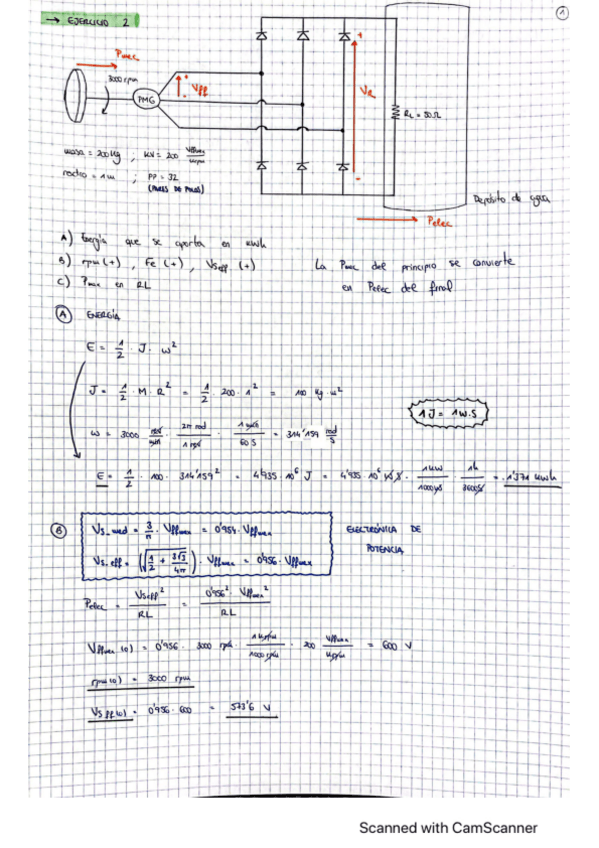 1
→ EJERCICIO 2
Pmec
3000 rpm
PMG
Vff
+
VR
-
RL = 50Ω
masa = 200 Kg ; KV = 200 Vffmax/Krpm
radio = 1m ; PP = 32
(PARES DE POLOS)
Depósito de agua
Pelec
A) Energía que se aporta en kWh
B) rpm (t) , Fe (t) , Vseff (t)
La Pmec del principio se convierte
C) Pmax en RL
en Pelec del final
A ENERGÍA
E = 1/2 · J · ω²
J = 1/2 · M · R² = 1/2 · 200 · 1² = 100 Kg · m²
1J = 1W.S
ω = 3000 rev/min · 2π rad/1 rev · 1 min/60 S = 314'159 rad/s
E = 1/2 · 100 · 314'159² = 4'935 · 10⁶ J = 4'935 · 10⁶ W·S · 1kW/1000W · 1h/3600S = 1'371 kWh
B Vs_med = 3/π · Vffmax = 0'954 · Vffmax
ELECTRÓNICA DE
Vs.eff = (√(1/2 + 3√3/4π)) · Vffmax = 0'956 · Vffmax
POTENCIA
Pelec = Vseff²/RL = 0'956² · Vffmax²/RL
Vffmax(0) = 0'956 · 3000 rpm · 1 Krpm/1000 rpm · 200 Vffmax/Krpm = 600 V
rpm(0) = 3000 rpm
Vseff(0) = 0'956 · 600 = 573'6 V
Scanned with CamScanner